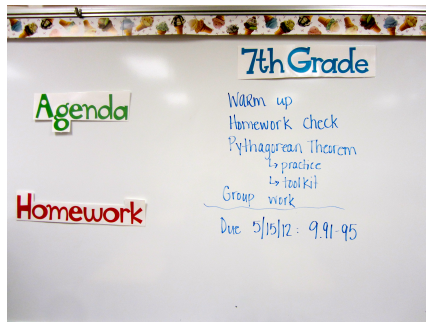 7th Grade
Agenda
Warm up
Homework check
Pythagorean Theorem
↳ practice
↳ toolkit
Group work
Homework
Due 5/15/12: 9.91-95